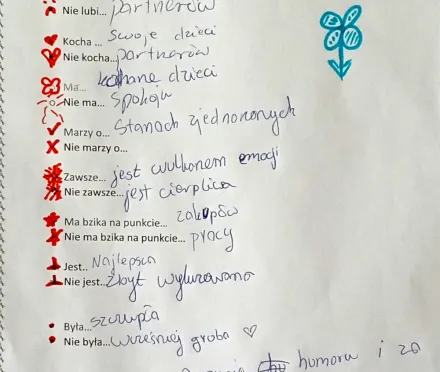 Nie lubi... partnerów
Kocha ... swoje dzieci
Nie kocha... partnerów
Ma... kochane dzieci
Nie ma... spokoju
Marzy o... Stanach zjednoczonych
Nie marzy o...
Zawsze... jest wulkonem emocji
Nie zawsze... jest cierplica
Ma bzika na punkcie... zakupów
Nie ma bzika na punkcie... pracy
Jest.. Najlepsza
Nie jest.. zbyt wyluzowana
Była... szczupła
Nie była... wcześniej gruba ♡
humoru i za